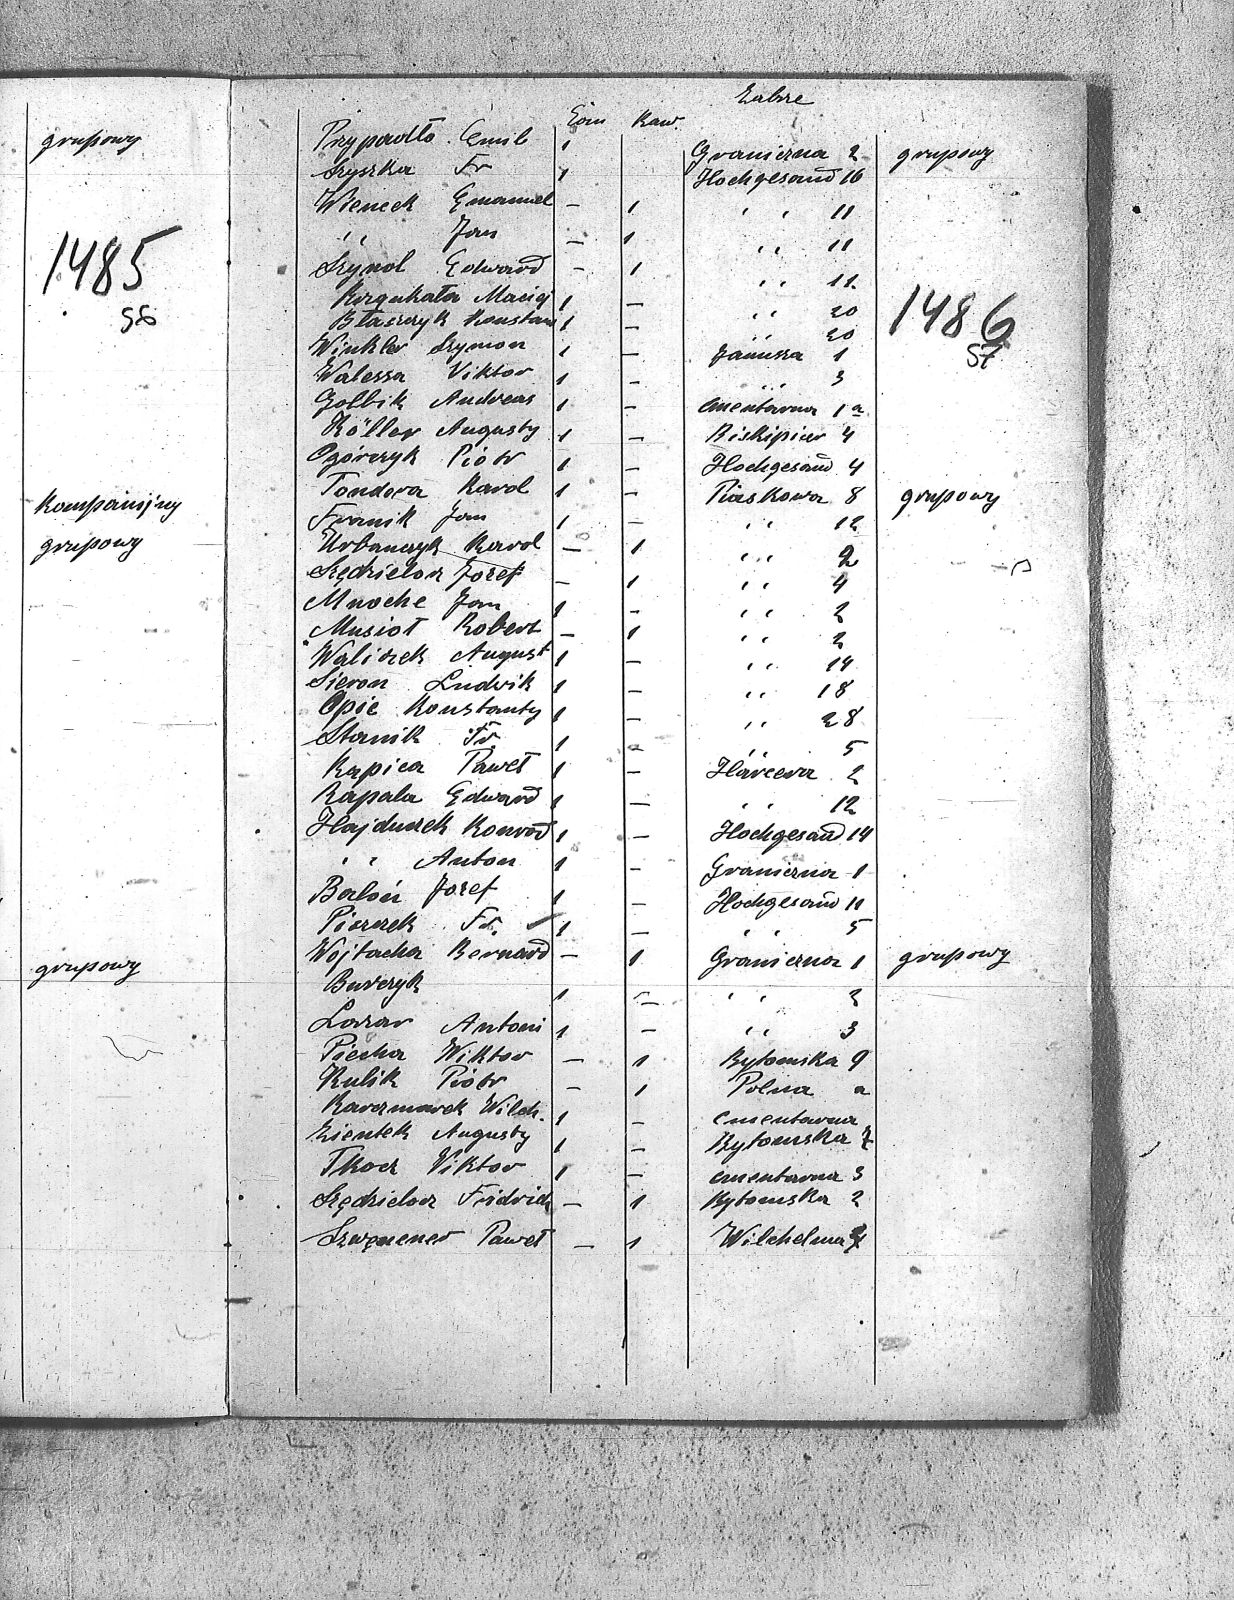 grupowy
1485
56
kompanijny
grupowy
grupowy
Zabrze
Żon Kaw.
Przypadło Emil 1 Graniczna 2 grupowy
Szyszka Fr 1 Hochgesand 16
Wieneck Emanuel – 1 " 11
" Jan – 1 " 11
Szynol Edward – 1 " 12
Maciej 1 – " 20
Błaszczyk Konstan 1 – " 20
1486
57
Winkler Szymon 1 – Janusza 1
Walessa Viktor 1 – " 3
Golbik Andreas 1 – cmentarna 1a
Köller Augusty 1 – 4
Ogórczyk Piotr 1 – Hochgesand 4
Tondera Karol 1 – Piaskowa 8 grupowy
Franik Jan 1 – " 12
Urbanczyk Karol – 1 " 2
Szędzielorz Jozef – 1 " 4
Mnoche Jan 1 – " 2
Musioł Robert – 1 " 2
Waliczek August 1 – " 14
Sieron Ludwik 1 – " 18
Opic Konstanty 1 – " 28
Stanik Fr. 1 – " 5
Kapica Paweł 1 – 2
Kapala Edward 1 – " 12
Hajduczek Konrad 1 – Hochgesand 14
" Anton 1 – Graniczna 1
Baloń Jozef 1 – Hochgesand 11
Piszczek Fr. 1 – " 5
Wojtacha Bernard – 1 Graniczna 1 grupowy
Burczyk 1 – " 2
Lazar Antoni 1 – " 3
Piecha Wiktor – 1 Bytomska 9
Kulik Piotr – 1 Polna a
Karczmarek Wilch. 1 – cmentarna
Zientek Augusty 1 – Bytomska 7
Tkocz Viktor 1 – cmentarna 3
Szędzielorz Fridrich – 1 Bytomska 2
Paweł – 1 Wilchelma